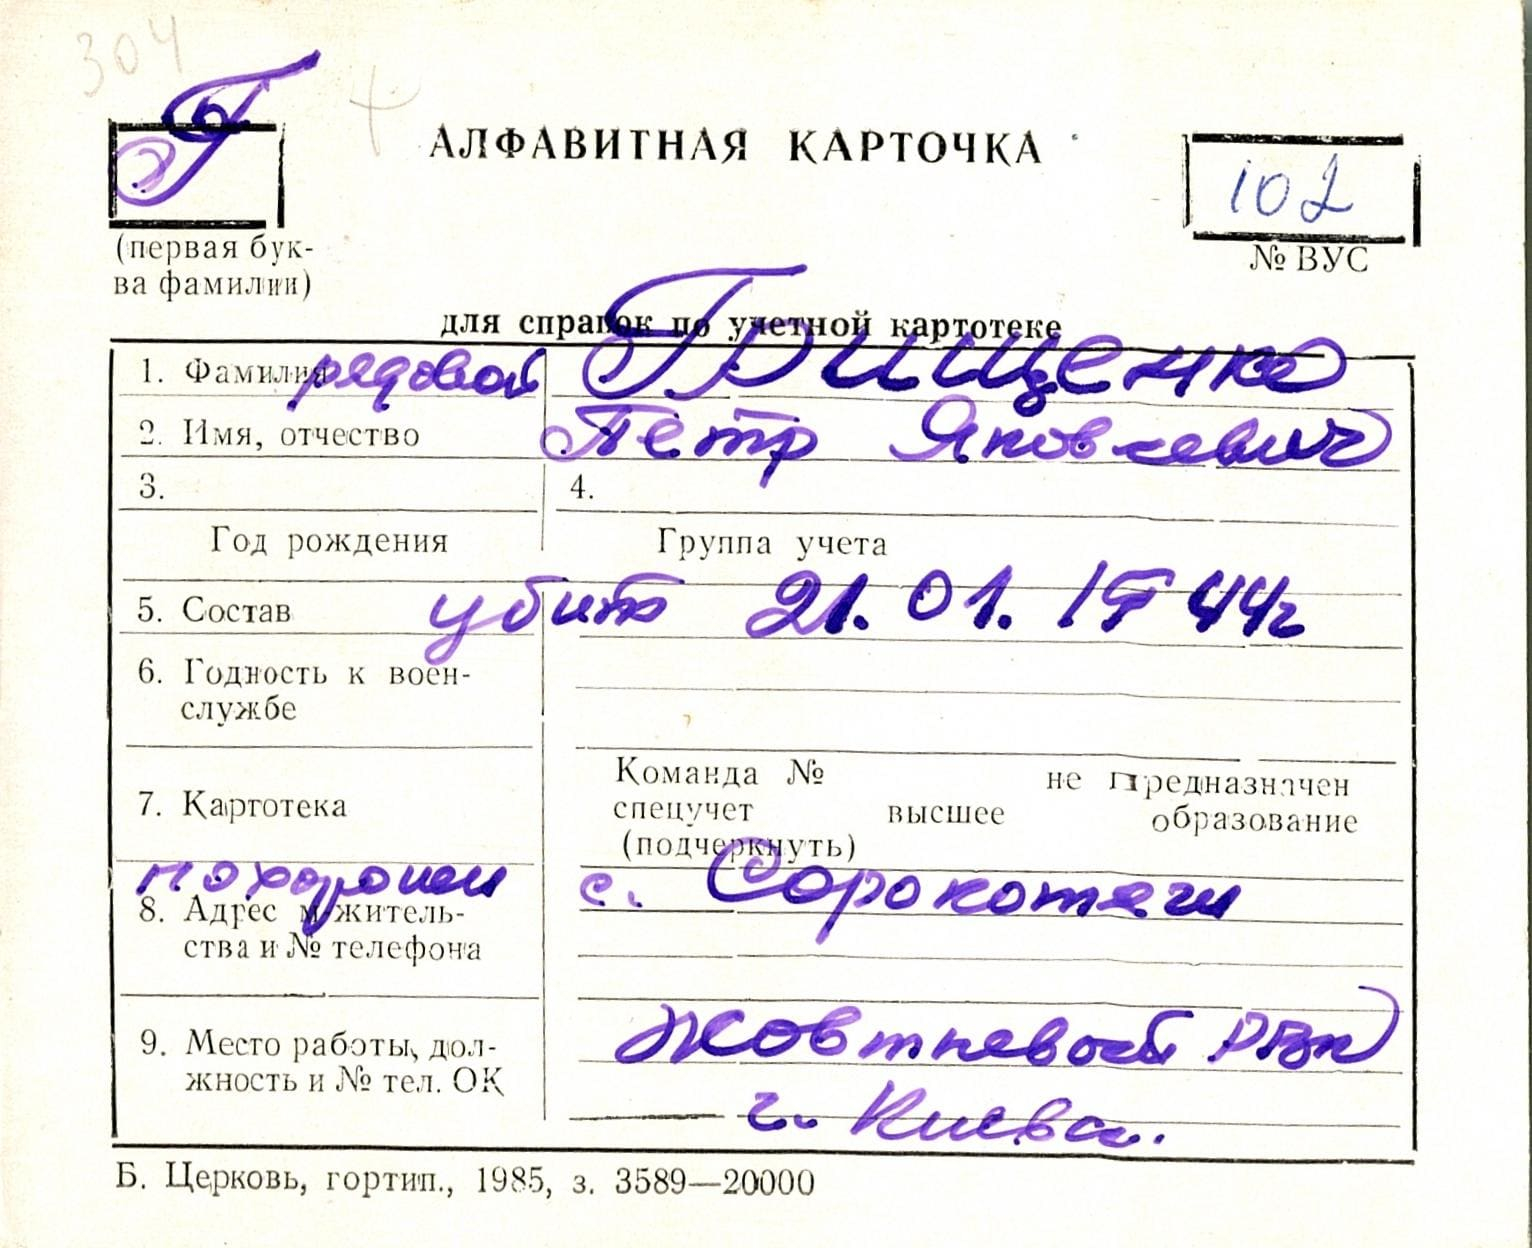 304
Г
АЛФАВИТНАЯ КАРТОЧКА
102
(первая бук-
ва фамилии)
№ ВУС
для справок по учетной картотеке
1. Фамилия рядовой Грищенко
2. Имя, отчество Петр Яковлевич
3. 4.
Год рождения Группа учета
5. Состав убит 21.01.1944г
6. Годность к воен-
службе
Команда № не предназначен
7. Картотека спецучет высшее образование
(подчеркнуть)
похоронен с. Сорокотяги
8. Адрес м/житель-
ства и № телефона
Жовтневый РВК
9. Место работы, дол-
жность и № тел. ОК
г. Киева.
Б. Церковь, гортип., 1985, з. 3589—20000